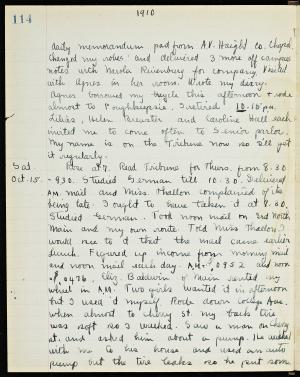 114
1910
daily memorandum pad from A.V. Haight Co. Chapel
changed my robes and delivered 3 more off campus
notes with Merola Rivenburg for company. Visited
with Agnes in her room. Wrote my diary.
Agnes borrowed my bicycle this afternoon + rode
almost to Poughkeepsie. I retired 10.10 p.m.
Lilias, Helen Brewster and Caroline Hall each
invited me to come often to Senior parlor.
My name is on the Tribune now so I'll get
it regularly.
Sat. Rose at 7. Read Tribune for Thurs. from 8.30
Oct. 15. - 9.30. Studied German till 10.30. Delivered
A.M. mail and Miss Thallon complained of its
being late. I ought to have taken it at 8.30.
Studied German. Took noon mail on 2nd North,
Main and my own route. Told Miss Thallon I
would see to it that the mail came earlier
lunch. Figured up income from morning mail
and noon mail each day. A.M. + .0952 and noon
+ .0476. Eliz. Baldwin, 4 Main rented my
wheel in A.M. Two girls wanted it in afternoon
but I used it myself. Rode down College Ave.
when almost to Cherry St. my back tire
was soft so I walked. Saw a man on Cherry
st. and asked him about a pump. He walked
with me to his house and used an auto
pump but the tire leaks so he put some